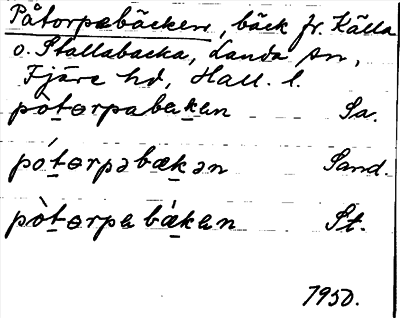 Påtorpabäcken, bäck fr. Källa
o. Stallabacka, Landa sn,
Fjäre hd, Hall. l.
pòtorpabakan Sa.
pótorpəbækən Sand.
pòtorpabákan St.
1950.